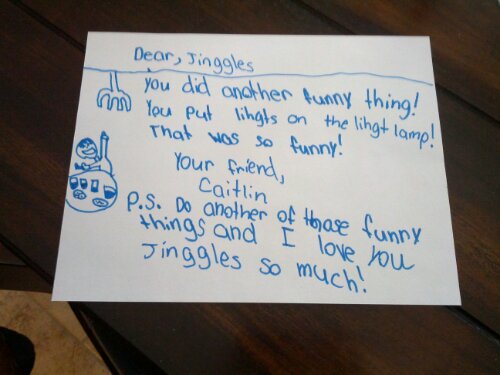 Dear, Jinggles
You did another funny thing!
You put lihgts on the lihgt lamp!
That was so funny!
Your friend,
Caitlin
P.S. Do another of those funny
things and I love you
Jinggles so much!